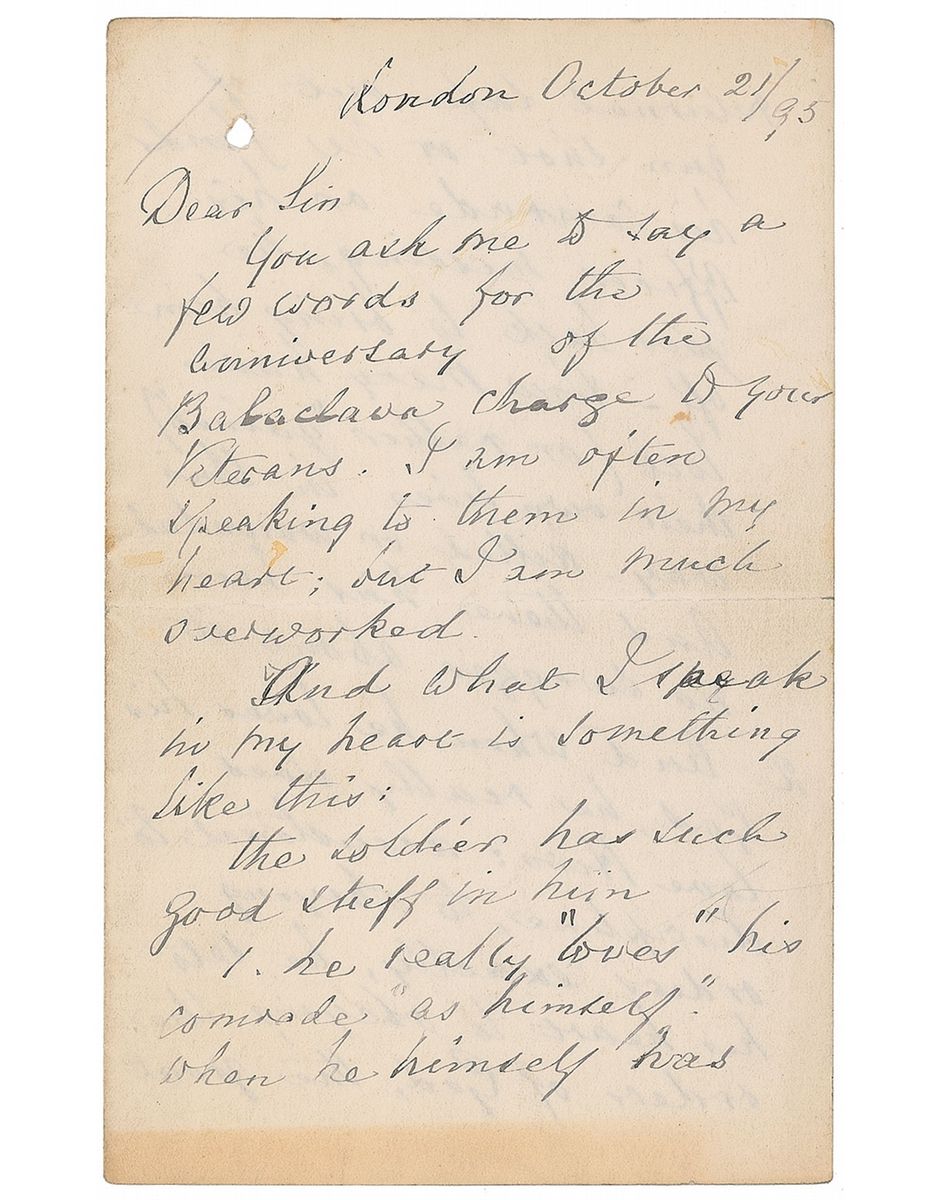 London October 21/95
Dear Sir
You ask me to say a
few words for the
anniversary of the
Balaclava charge to your
Veterans. I am often
speaking to them in my
heart; but I am much
overworked.
And what I speak
in my heart is something
like this:
the soldier has such
good stuff in him
1. he really "loves" his
comrade "as himself."
when he himself has